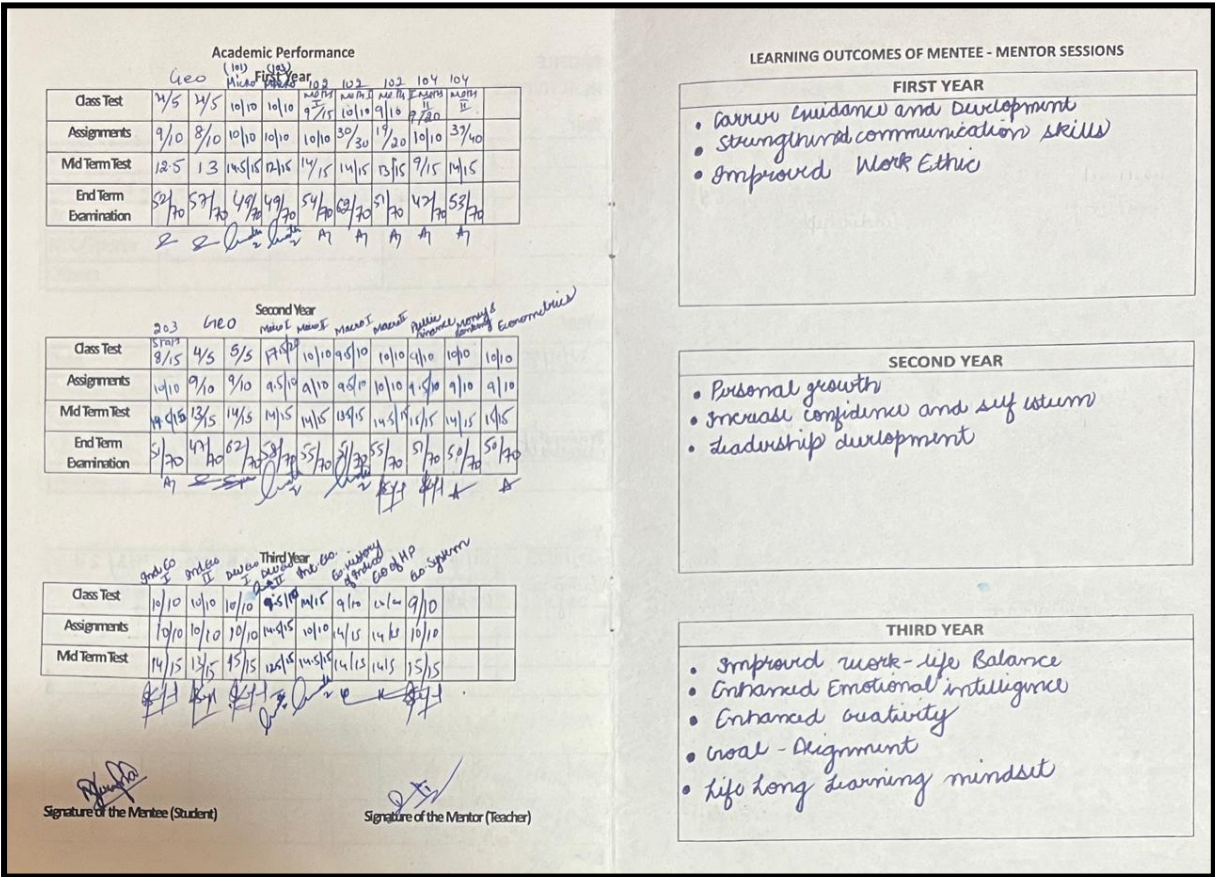 Academic Performance
Geo (101) Micro (103) 102 102 102 104 104
First Year
Class Test 4/5 4/5 10/10 10/10 9/15 10/10 9/10 9/20
Assignments 9/10 8/10 10/10 10/10 10/10 30/30 19/20 10/10 37/40
Mid Term Test 12.5 13 14.5/15 12/15 14/15 14/15 13/15 9/15 14/15
End Term Examination 52/70 57/70 49/70 49/70 54/70 62/70 51/70 42/70 53/70
Second Year
203 Stats Geo Micro I Macro I Macro II Public Finance Money & Banking Econometrics
Class Test 8/15 4/5 5/5 17.5/20 10/10 9.5/10 10/10 9/10 10/10 10/10
Assignments 10/10 9/10 9/10 9.5/10 9/10 9.5/10 10/10 9.5/10 9/10 9/10
Mid Term Test 14.5/15 13/15 14/15 14/15 14/15 13.5/15 14.5/15 15/15 14/15 15/15
End Term Examination 51/70 47/70 62/70 58/70 55/70 51/70 55/70 51/70 50/70 50/70
Third Year
Ind. Eco I Ind Eco II Dev Eco I Dev Eco II Int. Eco. Eco. History of India Eco of HP Eco System
Class Test 10/10 10/10 10/10 9.5/10 14/15 9/10 9/10
Assignments 10/10 10/10 10/10 14.5/15 10/10 14/15 14/15 10/10
Mid Term Test 14/15 13/15 15/15 12.5/15 14.5/15 14/15 14/15 15/15
Signature of the Mentee (Student)
Signature of the Mentor (Teacher)
LEARNING OUTCOMES OF MENTEE - MENTOR SESSIONS
FIRST YEAR
• Carrer Guidance and Development
• Strengthened communication skills
• Improved Work Ethic
SECOND YEAR
• Personal growth
• Increase confidence and self esteem
• Leadership development
THIRD YEAR
• Improved work-life Balance
• Enhanced Emotional intelligence
• Enhanced creativity
• Goal - Alignment
• Life Long Learning mindset